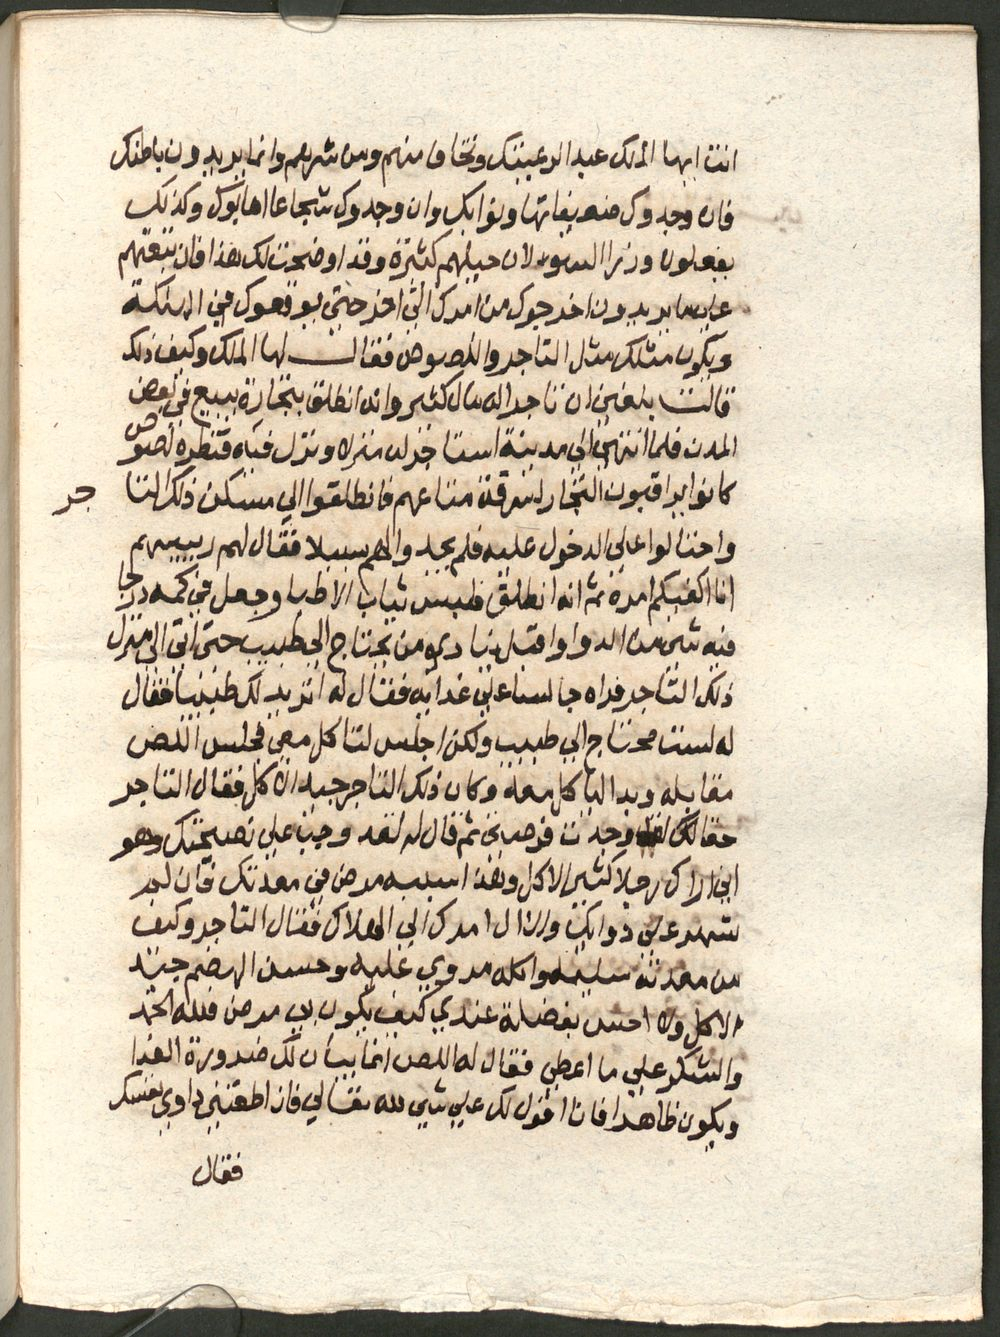 انت ايها الملك عبدا لرعيتك وتخاف منهم ومن شرهم وانما يريدون باطنك
فان وجدوك ضعيفا تهاونوا بك وان وجدوك شجاعا اهابوك وكذلك
يفعلون وزرا السوء لان حيلهم كثيرة وقد اوضحت لك هذا فان تبعتهم
علي ما يريدون اخرجوك من امرك الي اخر حتي يوقعوك في الهلكة
ويكون مثلك مثل التاجر واللصوص فقال لها الملك وكيف ذلك
قالت بلغني ان تاجرا له مال كثير وانه انطلق بتجارة يبيع في بعض
المدن فلما انتهي الي مدينة استاجر له منزلا ونزل فيه فنظره لصوص
كانوا يراقبون التجار لسرقة متاعهم فانطلقوا الي مسكن ذلك التا
جر
واحتالوا علي الدخول عليه فلم يجدوا لهم سبيلا فقال لهم رييسهم
انا اكفيكم امره ثم انه انطلق فلبس ثياب الاطبا وجعل في كمه درجا
فيه شي من الدوا واقبل ينادي من يحتاج الي طبيب حتي اتي الي منزل
ذلك التاجر فراه جالسا علي غدايه فقال له اتريد لك طبيبا فقال
له لست محتاج الي طبيب ولكن اجلس لتاكل معي فجلس اللص
مقابله وبدا ياكل معه وكان ذلك التاجر جيد الاكل فقال التاجر
حقا لك لقد وجدت فرصتي ثم قال له لقد وجب علي نصيحتك وهو
اني اراك رجلا كثير الاكل وهذا سببه مرض في معدتك فان لم
تسرع علي دوايك والا ال امرك الي الهلاك فقال التاجر وكيف
من معدته سليمة واكله مروي عليه وحسن الهضم جيد
الاكل ولا احس بفضلة عندي كيف يكون بي مرض فلله الحمد
والشكر علي ما اعطي فقال له اللص انما يبان لك ضرورة الغدا
ويكون ظاهرا فانا اقول لك علي شي لله تعالي فان اطعتني داوي نفسك
فقال